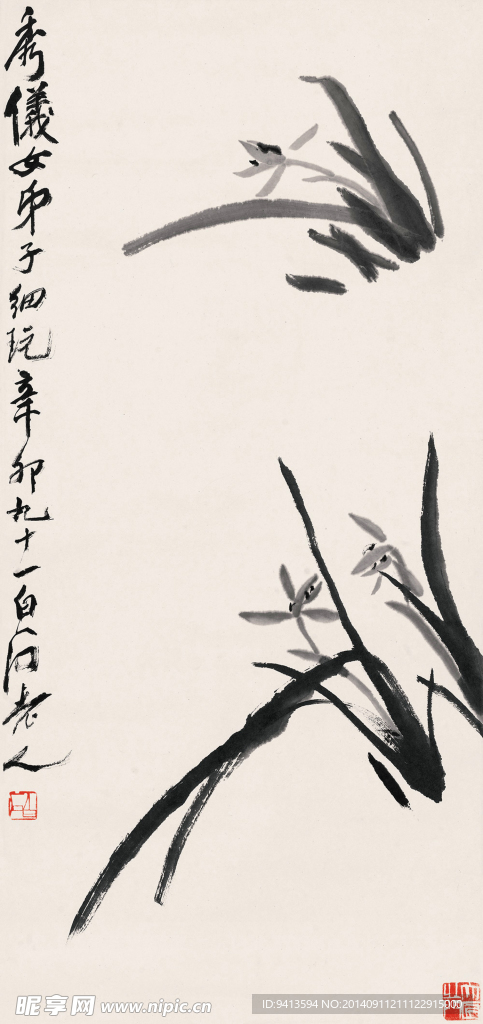 秀儀女弟子細玩辛卯九十一白石老人
昵享网 www.nipic.cn
ID:9413594 NO:20140911211122915000